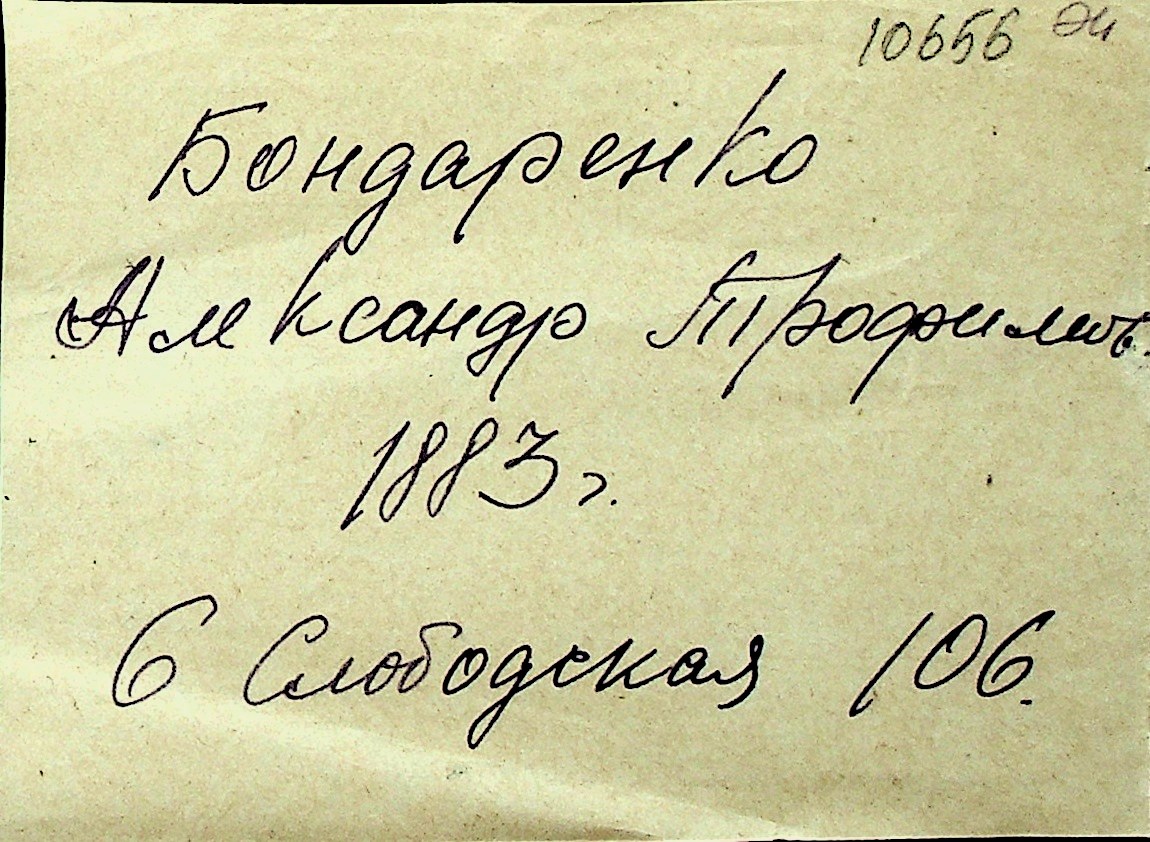 10656
Бондаренко
Александр Трофимов.
1883 г.
6 Слободская 106.